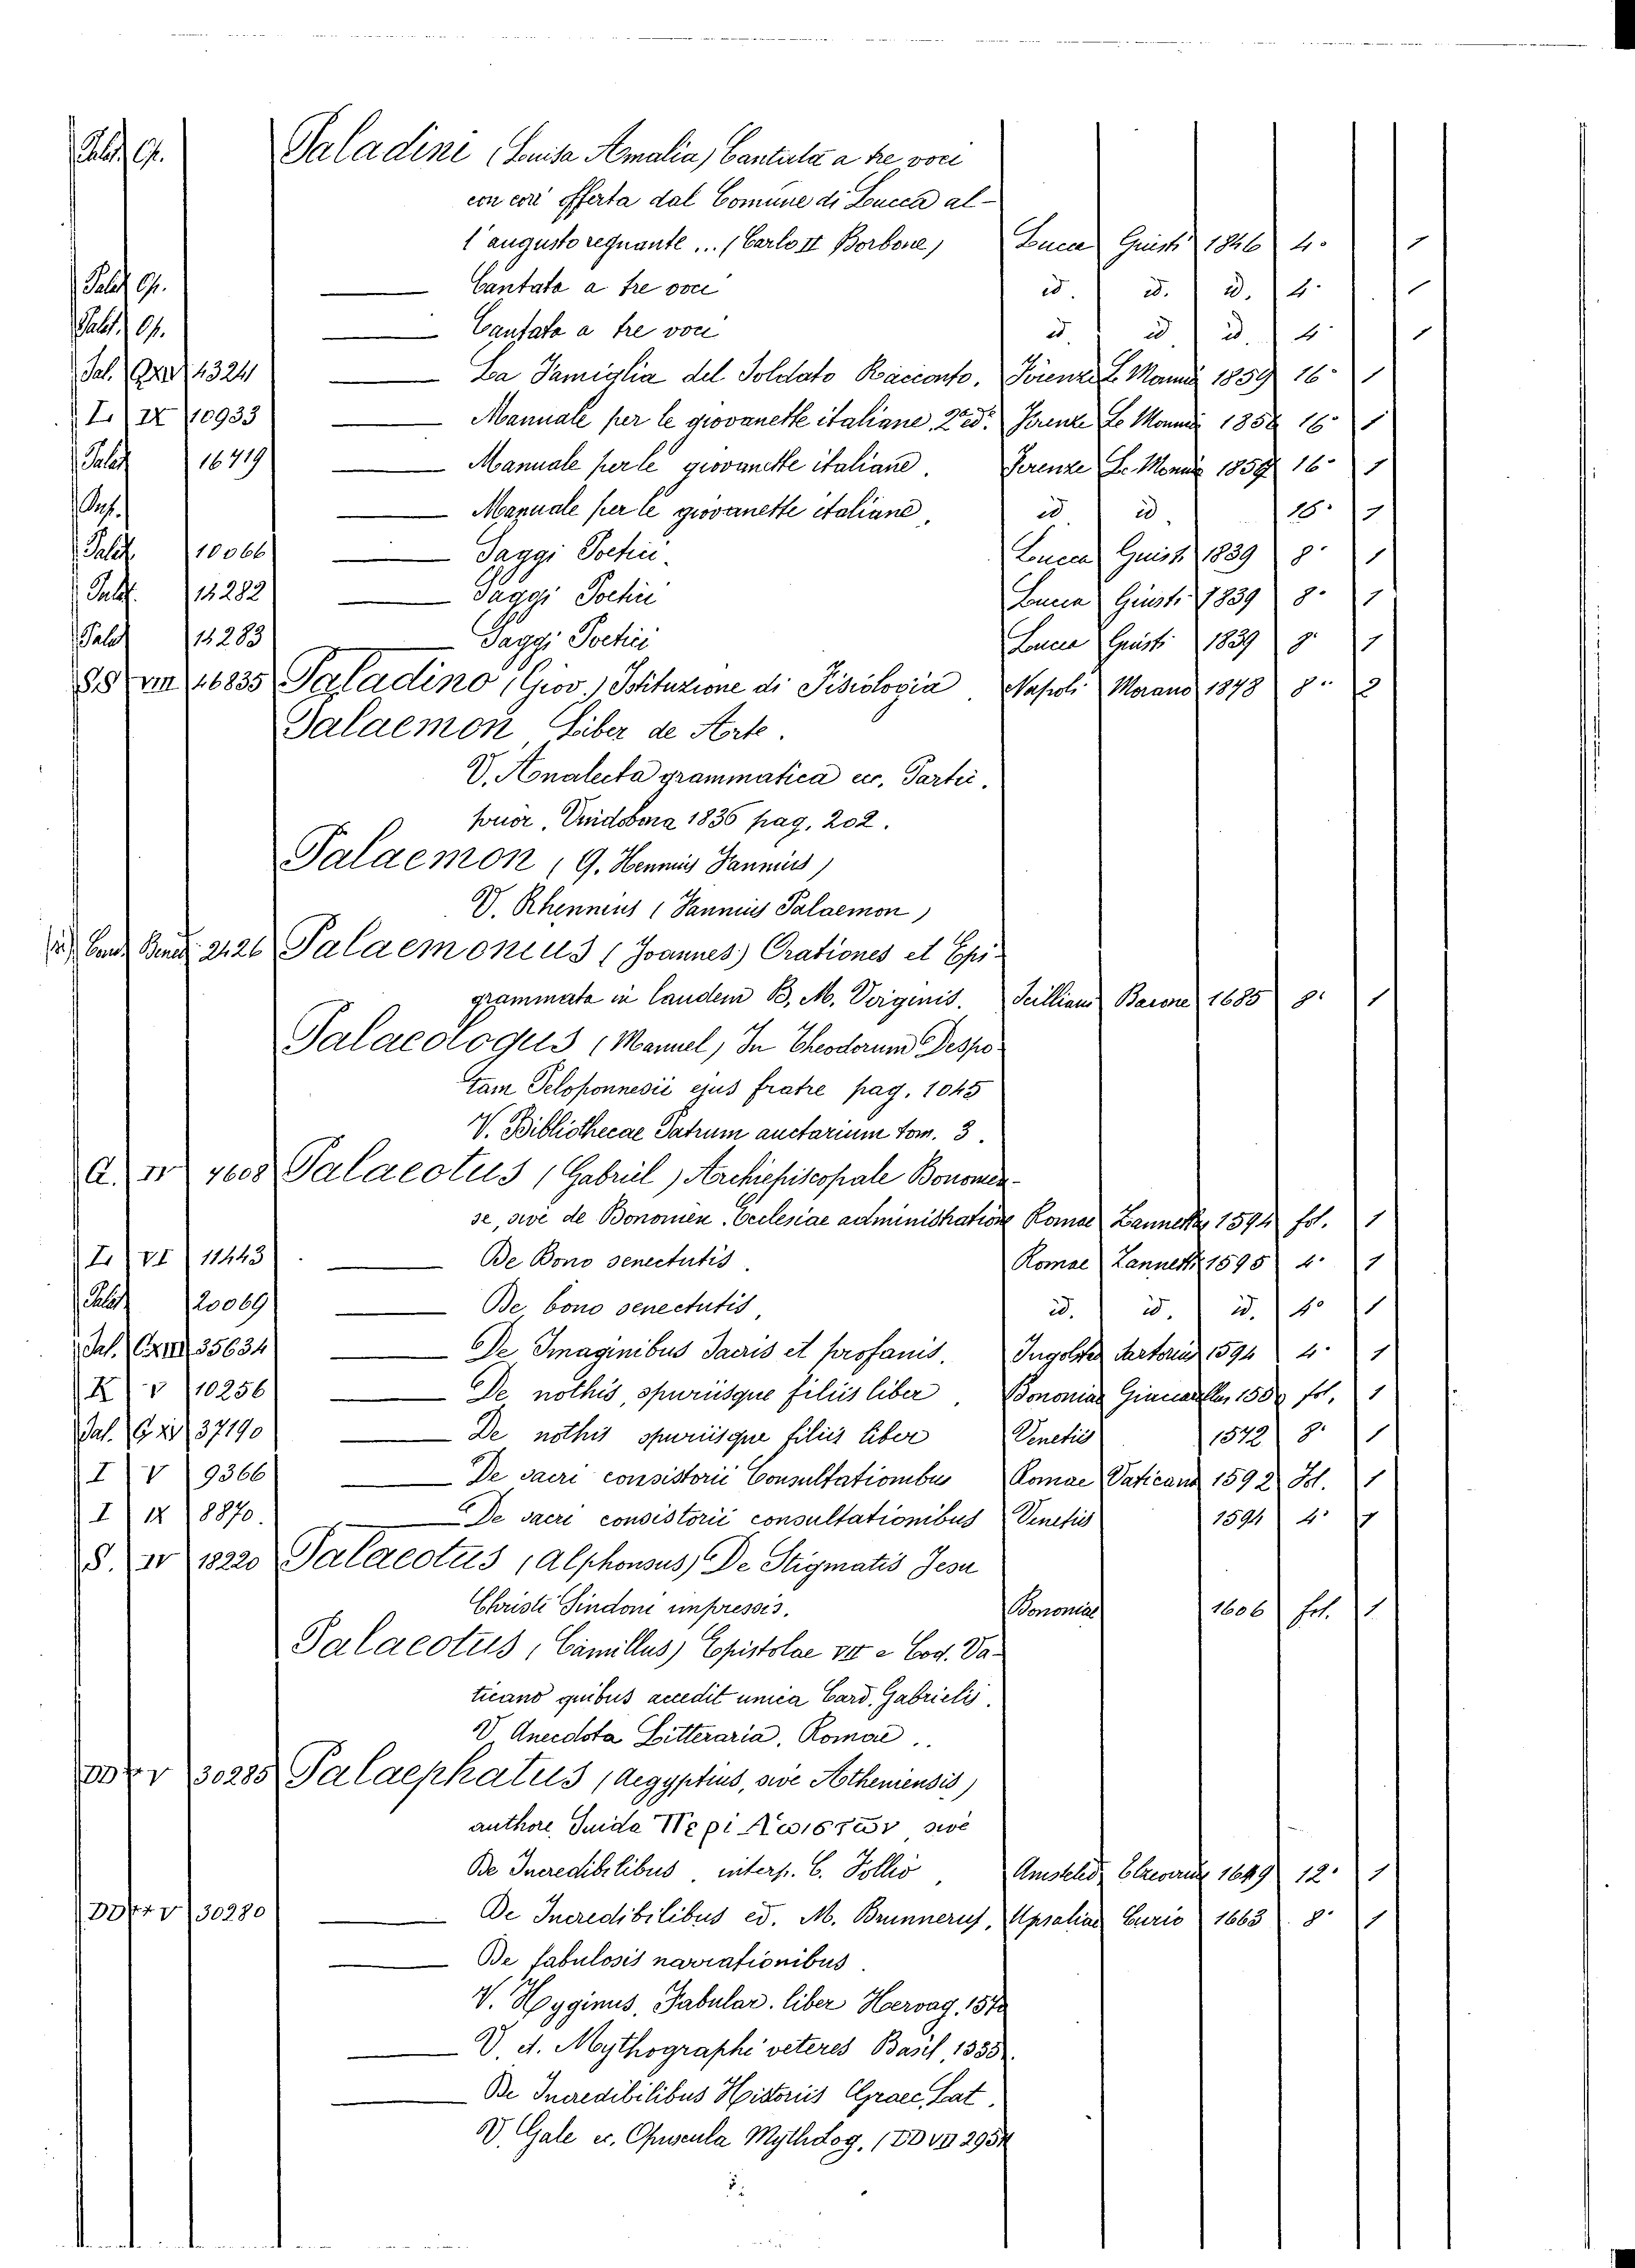 Palat. Op. Paladini (Luisa Amalia) Cantata a tre voci
con cori offerta dal Comune di Lucca al-
l'augusto regnante... (Carlo II Borbone) Lucca Giusti 1846 4° 1
Palat. Op. ——— Cantata a tre voci id. id. id. 4° 1
Palat. Op. ——— Cantata a tre voci id. id id. 4° 1
Sal. 4324 ——— La Famiglia del Soldato Racconto. Firenze Le Monnier 1859 16° 1
L. IX 10933 ——— Manuale per le giovanette italiane, 2ª ed. Firenze Le Monnier 16° 1
Palat 16719 ——— Manuale per le giovanette italiane. Firenze Le Monnier 16° 1
——— Manuale per le giovanette italiane, id id. 16° 1
Palat. 10066 ——— Saggi Poetici. Lucca Giusti 1839 8° 1
Palat. 14282 ——— Saggi Poetici Lucca Giusti 1839 8° 1
Palat 14283 Saggi Poetici Lucca Giusti 1839 8° 1
SS VIII 46835 Paladino (Giov.) Istituzione di Fisiologia. Napoli Morano 1878 8° 2
Palaemon, Liber de Arte.
V. Analecta grammatica ec.
Vindobona 1836 pag. 202.
Palaemon (Q. Fannius)
V. Rhennius (Fannius Palaemon)
2126 Palaemonius (Joannes) Orationes et Epi-
grammata in laudem B. M. Virginis. Barone 1685 8° 1
Palaeologus (Manuel) In Theodorum Despo-
tam Peloponnesii ejus fratre pag. 1045
V. Bibliothecae Patrum auctarium tom. 3.
A. IV 4608 Palaeotus (Gabriel) Archiepiscopale Bononien-
se, sive de Bononien. Ecclesiae administratione Romae Zannetti 1594 fol. 1
L. VI 11443 ——— De Bono senectutis. Romae Zannetti 1595 4° 1
Palat 20069 ——— De bono senectutis, id. id. id. 4° 1
Sal. CXIII 35634 ——— De Imaginibus Sacris et profanis. Ingolstad Sartorius 1594 4° 1
K V 10256 ——— De nothis, spuriisque filiis liber, Bononiae fol. 1
Sal. 37190 ——— De nothis spuriisque filiis liber Venetiis 1572 8° 1
I V 9366 ——— De sacri consistorii Consultationibus Romae Vaticana 1592 Fol. 1
I IX 8870. ——— De sacri consistorii consultationibus Venetiis 1594 4° 1
S. IV 18220 Palaeotus (Alphonsus) De Stigmatis Jesu
Christi Sindoni impressis. Bononiae 1606 fol. 1
Palaeotus (Camillus) Epistolae VII e Cod. Va-
ticano quibus accedit unica Card. Gabrielis.
V. Anecdota Litteraria, Romae..
V 30285 Palaephatus (Aegyptius, sive Atheniensis)
authore Suida Περι Απιστων sive
De Incredibilibus, interp. C. Tollio, Amstelod. Elzevirius 1649 12° 1
V 30280 ——— De Incredibilibus ed. M. Brunnerus, Upsaliae Curio 1663 8° 1
——— De fabulosis narrationibus.
V. Hyginus, Fabular. liber Hervag. 1570
——— V. et. Mythographi veteres Basil, 1535.
——— De Incredibilibus Historiis Graec, Lat.
V. Gale ec. Opuscula Mytholog. (DD VII 2954